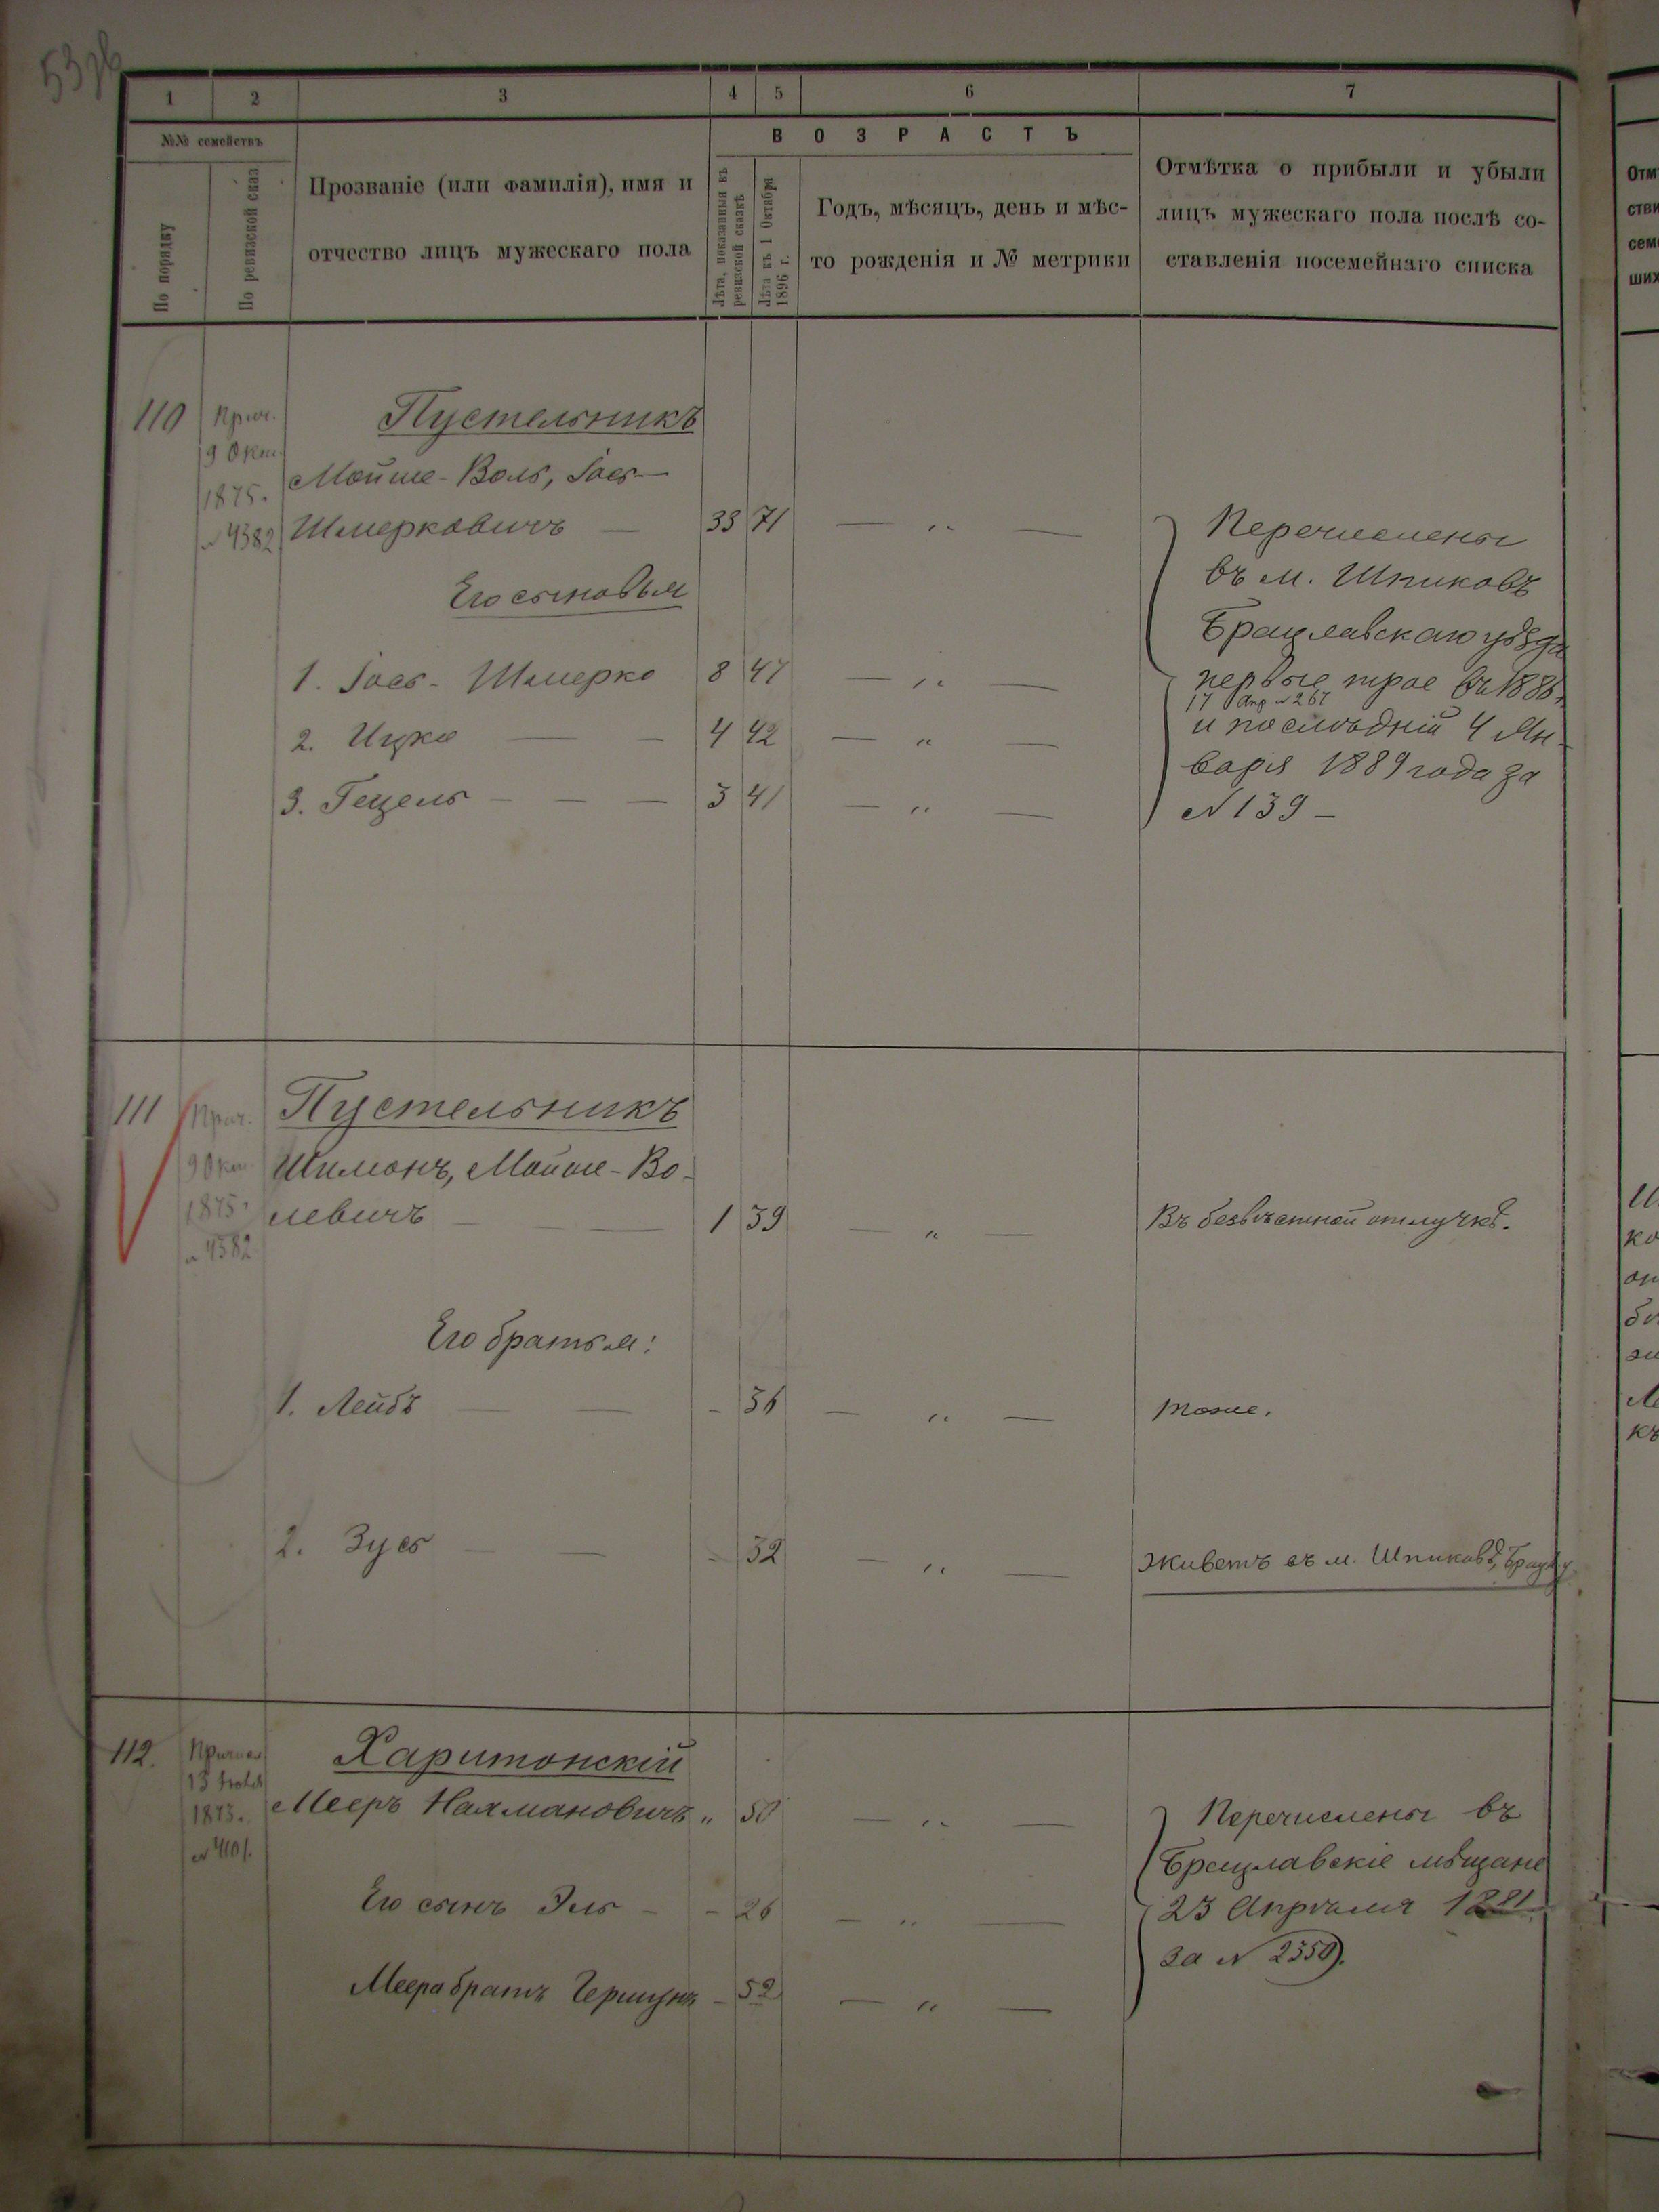 1 2 3 4 5 6 7
№№ семействъ
По порядку
По ревизской сказ
Прозваніе (или фамилія), имя и
отчество лицъ мужескаго пола
ВОЗРАСТЪ
Лѣта, показанныя въ
ревизской сказкѣ
Лѣта къ 1 Октября
1896 г.
Годъ, мѣсяцъ, день и мѣс-
то рожденія и № метрики
Отмѣтка о прибыли и убыли
лицъ мужескаго пола послѣ со-
ставленія посемейнаго списка
110
Прич.
9 Окт.
1875.
№ 4382
Пустельникъ
Мойше-Воль, Іось-
Шмерковичъ — 33 71 — „ —
Его сыновья
1. Іось-Шмерко 8 47 — „ —
2. Ицко — — 4 42 — „ —
3. Гецель — — — 3 41 — „ —
Перечислены
въ м. Шпиковъ
Брацлавскаго уѣзда
первые трое въ 1886
17 Апр № 267
и послѣдній 4 Ян-
варя 1889 года за
№ 139 —
111
Прич.
9 Окт.
1875.
№ 4382
Пустельникъ
Шимонъ, Мойше-Во-
левичъ — — 1 39 — „ — Въ безвѣстной отлучкѣ.
Его братья:
1. Лейбъ — — - 36 — „ — тоже.
2. Зусь — — - 32 — „ — Живетъ въ м. Шпиковѣ, Брацл. у.
112.
Причисл
13
1873.
№ 4101.
Харитонскій
Мееръ Нахмановичъ „ 50 — „ —
Его сынъ Эль - - 26 — „ —
Меера братъ Гершунъ - 52 — „ —
Перечислены въ
Брацлавскіе мѣщане
23 Апрѣля 1881
за № 2350.